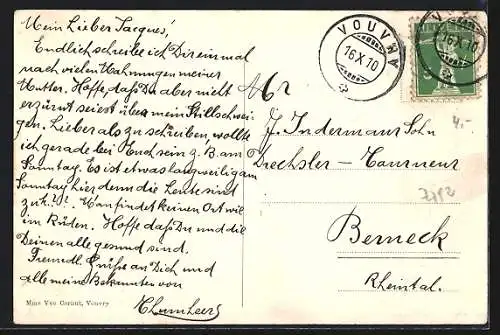 Mein Lieber Jacques!
Endlich schreibe ich Dir einmal
nach vielen Mahnungen meiner
Mutter. Hoffe, daß Du aber nicht
erzürnt seiest über mein Stillschwei-
gen. Lieber als zu schreiben, wollte
ich gerade bei Euch sein z. B. am
Sonntag. Es ist etwas langweilig am
Sonntag hier denn die Leute sind
zu k.??. Man findet keinen Ort wie
im Rüden. Hoffe daß Du und die
Deinen alle gesund sind.
Freundl. Grüße an Dich und
alle meine Bekannten von
Mme Vve Cornut, Vouvry
VOUVRY
16 X 10
Mr
J. Indermaur Sohn
Drechsler – Tourneur
Berneck
Rheintal.
4.-